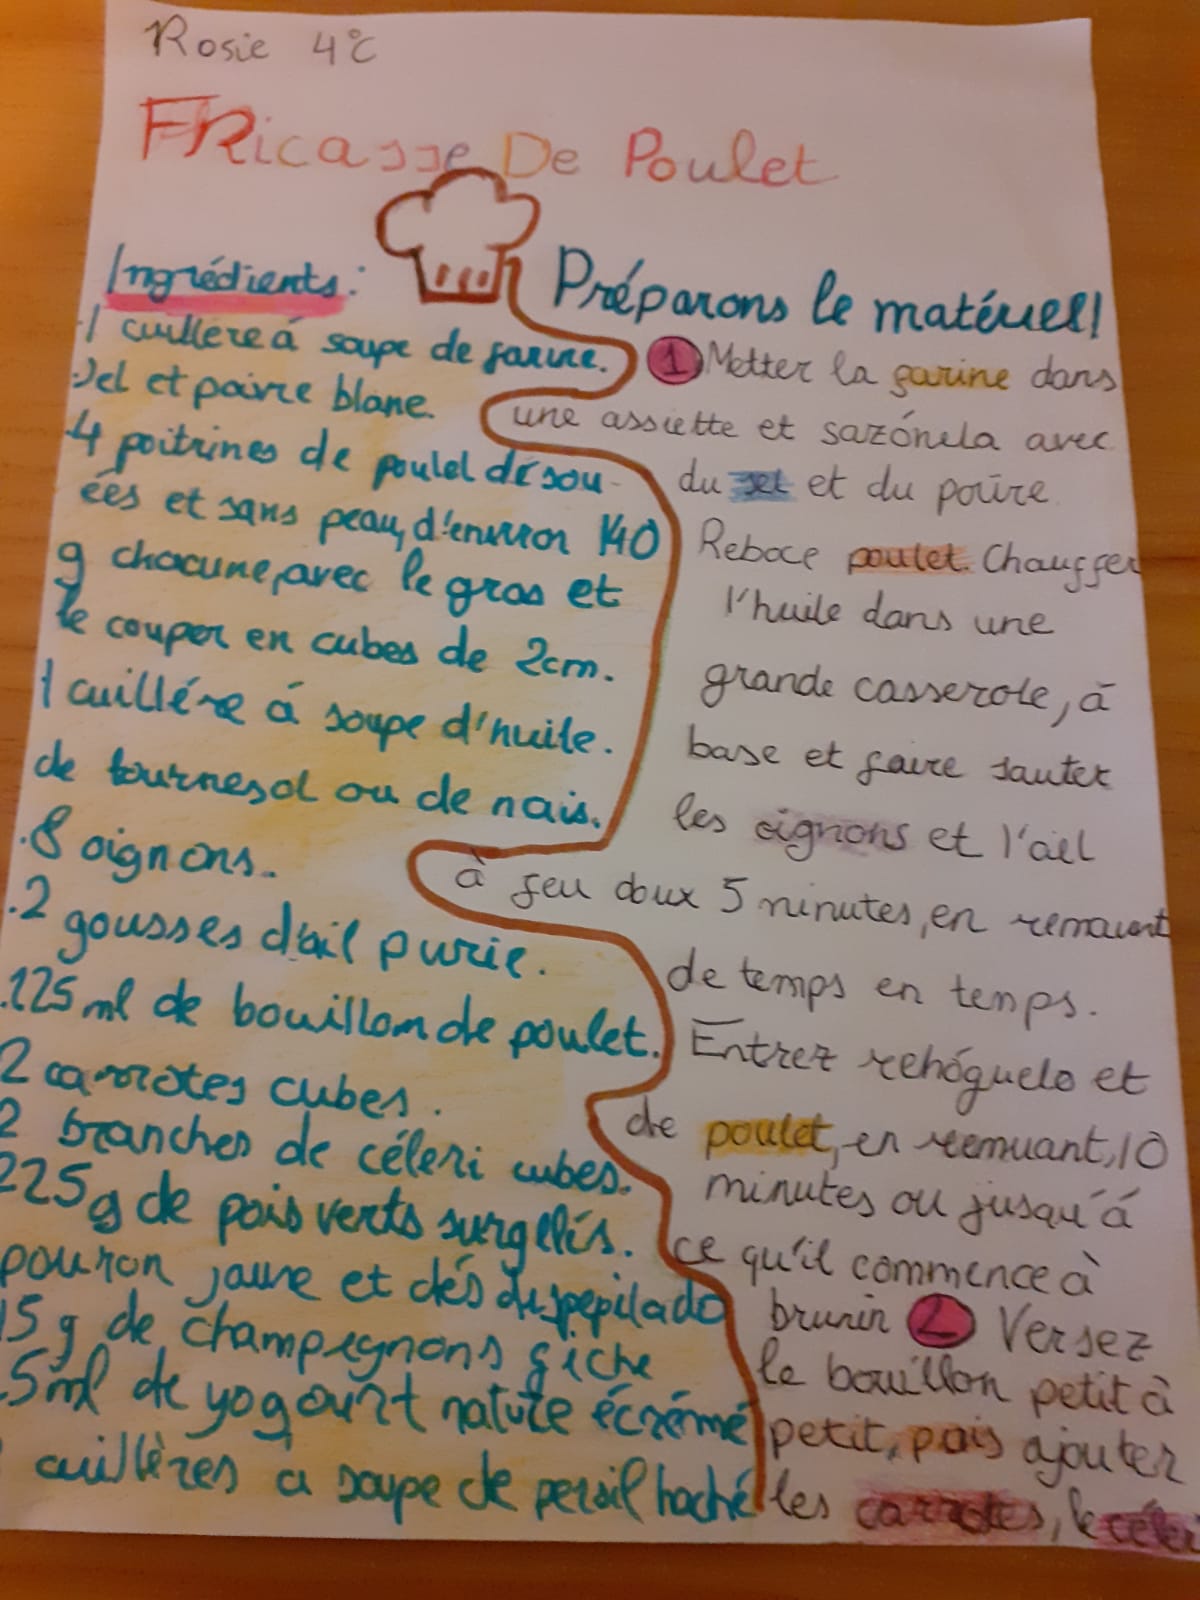 Rosie 4°C
FRicasse De Poulet
Ingrédients:
1 cuillère à soupe de farine.
Sel et poivre blanc.
4 poitrines de poulet désou-
ées et sans peau, d'environ 140
g chacune, avec le gras et
le couper en cubes de 2cm.
1 cuillére á soupe d'huile.
de tournesol ou de nais.
.8 oignons.
.2 gousses d'ail purie.
.125 ml de bouillon de poulet.
2 carrotes cubes.
2 branches de céleri cubes.
225g de pois verts surgelés.
pouron jaune et dés despepilado
15 g de champegnons fiche
5ml de yogourt nature écrémé
cuillères a soupe de persil haché
Préparons le matériel!
1 Metter la farine dans
une assiette et sazónela avec
du sel et du poivre.
Reboce poulet. Chauffer
l'huile dans une
grande casserole, à
base et faire sauter
les oignons et l'ail
à feu doux 5 ninutes, en remauant
de temps en tenps.
Entrez rehóguelo et
de poulet, en remuant, 10
minutes ou jusqu'á
ce qu'il commence à
brunir 2 Versez
le bouillon petit à
petit, pais ajouter
les carrotes, le céleri